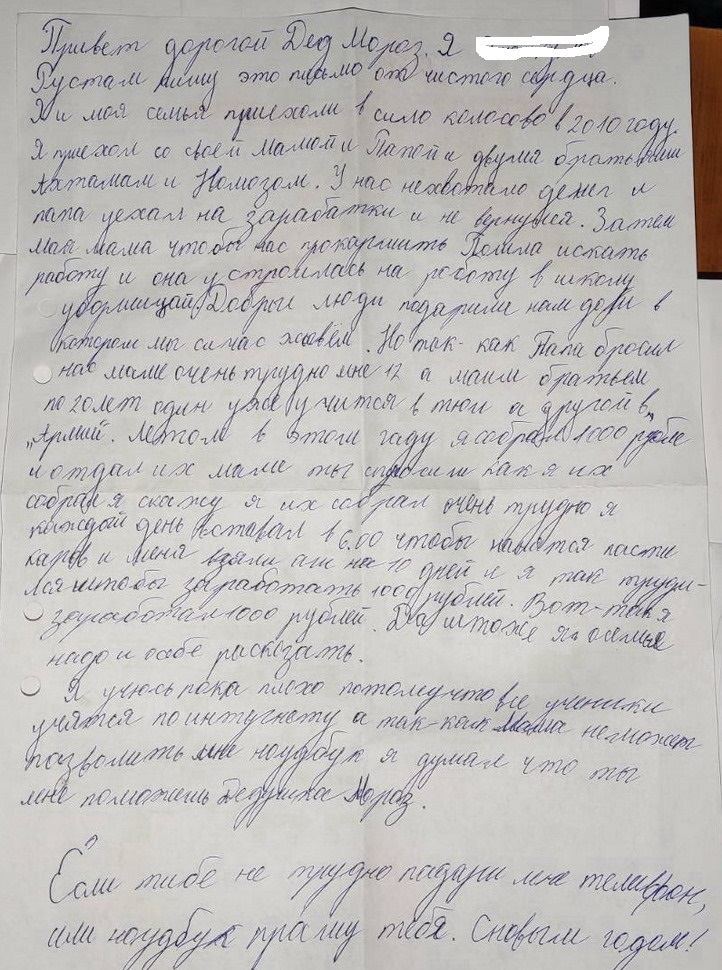 Привет дорогой Дед Мороз. Я
Рустам пишу это письмо от чистого сердца.
Я и моя семья приехоли в сило колосово в 2010 году.
Я приехол со своей мамой и Папой и двумя братьями
Ахтамам и Номозом. У нас нехвотало денег и
папа уехал на заработки и не вернулся. Затем
май мама чтобы нас прокармить Пошла искать
работу и она устроилась на роботу в школу
уборшицай. Добрыи люди подарили нам дом в
котером мы сичас живём. Но так-как Папа бросил
нас маме очень трудно мне 12 а маим братьем
по 20 лет один уже учится в тюи а другой в
„Армий. Летом в этом гаду я собрал 1000 рубле
и отдал их маме ты спросиш как я их
собрал я скажу я их собрал очень трудно я
каждый день вставал в 6.00 чтобы наистя пасти
каров и меня взяли аш на 10 дней и я так труди-
лся штобы заработать 1000 рублей. Вот-так я
заработал 1000 рублей. Да и тоже я о семье
надо и о себе расказать.
Я учюсь пока плохо потомучто все ученики
учятся по интугнету а так-как Мама неможет
пазволить мне ноудбук я думал что ты
мне поможешь Дедушка Мороз.
Если тибе не трудно падари мне телифон,
или ноудбук прашу тебя. Сновым годом!